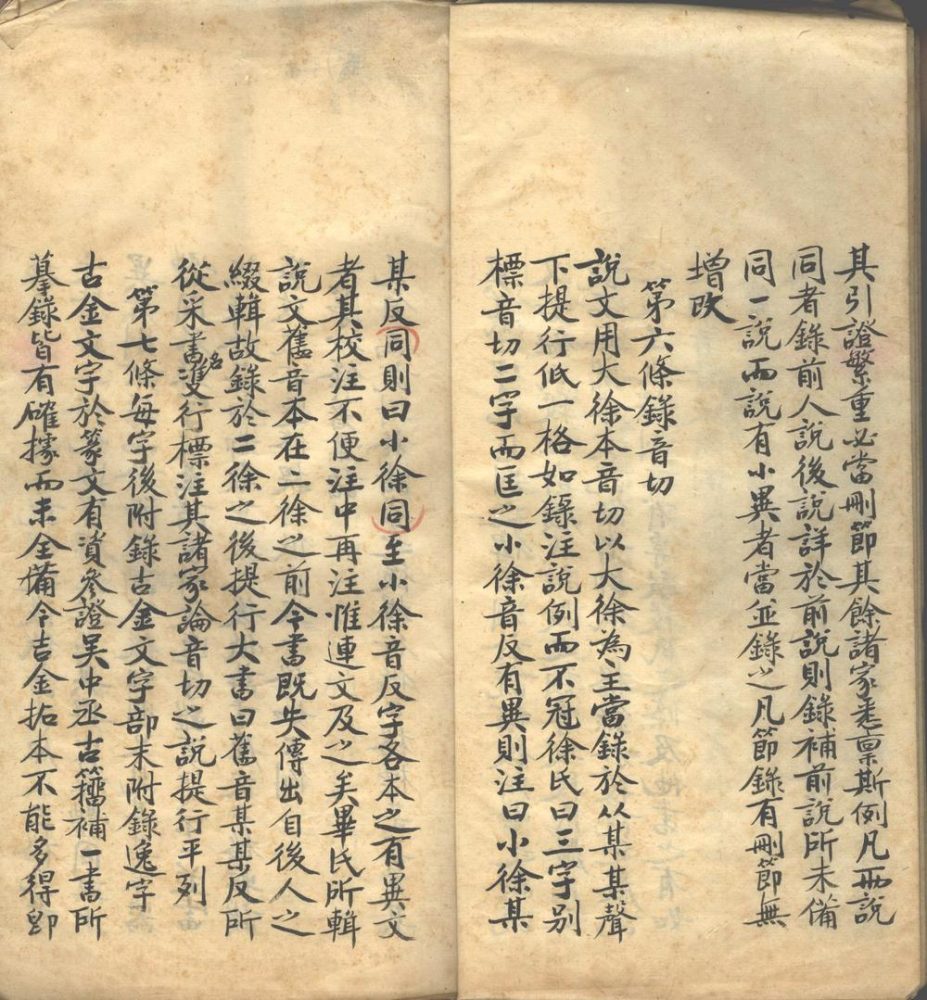 其引證繁重必當刪節其餘諸家悉稟斯例凡兩說
同者錄前人說後說詳於前說則錄補前說所未備
同一說而說有小異者當並錄之凡節錄有刪節無
增改
第六條錄音切
說文用大徐本音切以大徐為主當錄於从某某聲
下提行低一格如錄注說例而不冠徐氏曰三字別
標音切二字而匡之小徐音反有異則注曰小徐某
某反同則曰小徐同至小徐音反字各本之有異文
者其校注不便注中再注惟連文及之矣畢氏所輯
說文舊音本在二徐之前今書既失傳出自後人之
綴輯故錄於二徐之後提行大書曰舊音某某反所
從采書名雙行標注其諸家論音切之說提行平列
第七條每字後附錄古金文字部末附錄逸字
古金文字於篆文有資參證吳中丞古籀補一書所
摹錄皆有確據而未全備今吉金拓本不能多得卽